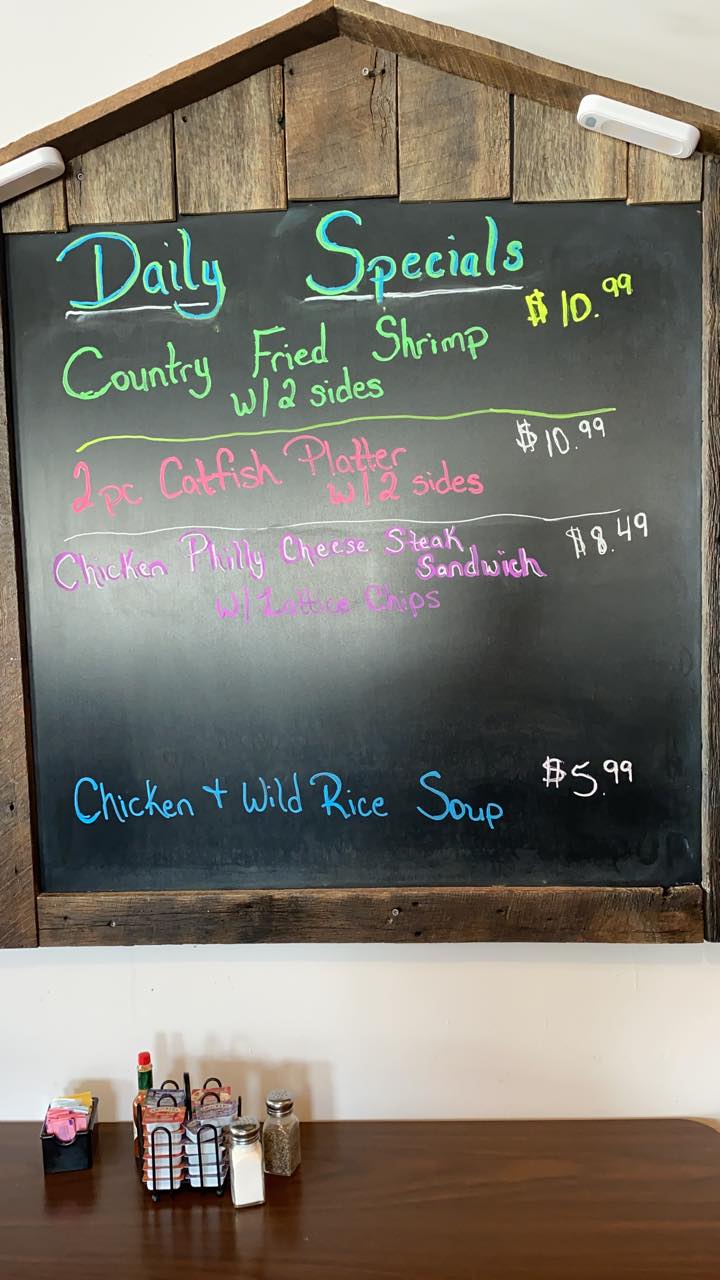 Daily Specials
Country Fried Shrimp $10.99
w/2 sides
2pc Catfish Platter $10.99
w/2 sides
Chicken Philly Cheese Steak $8.49
Sandwich
w/ Lattice Chips
Chicken + Wild Rice Soup $5.99